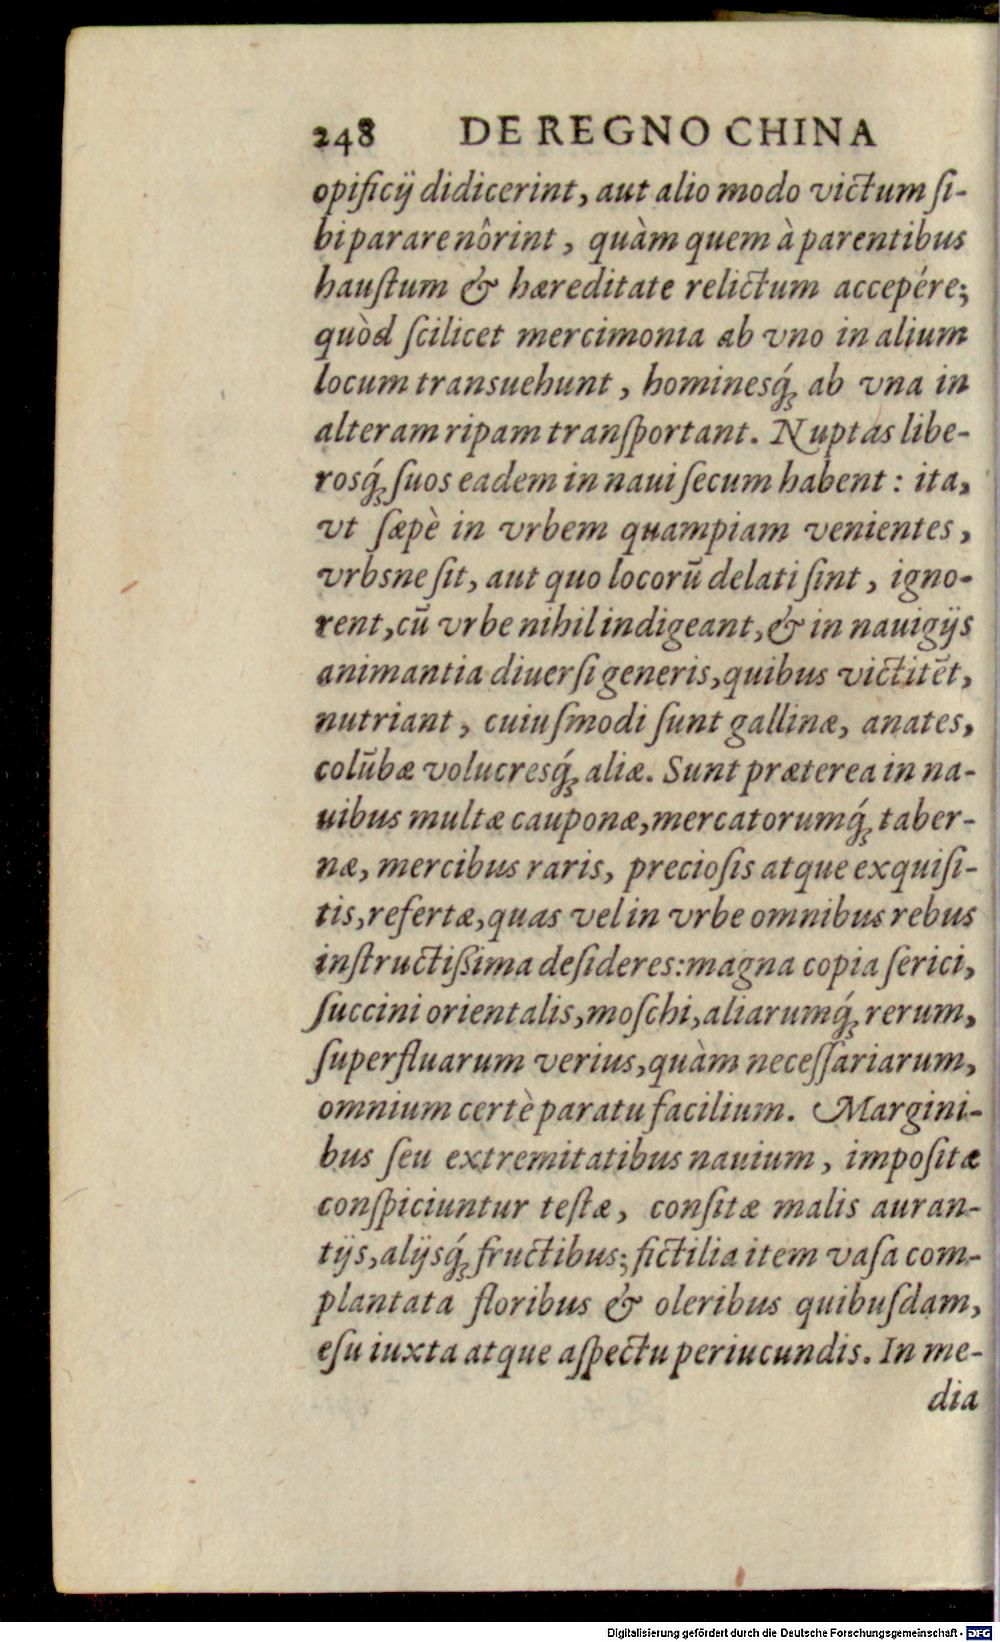 248 DE REGNO CHINA
opificij didicerint, aut alio modo victum ſi-
bi parare nôrint, quàm quem à parentibus
hauſtum & hæreditate relictum accepére;
quòd ſcilicet mercimonia ab vno in alium
locum transuehunt, hominesq́ꝫ ab vna in
alteram ripam tranſportant. Nuptas libe-
rosq́ꝫ ſuos eadem in naui ſecum habent: ita,
vt ſæpè in vrbem quampiam venientes,
vrbsne ſit, aut quo locorū delati ſint, igno-
rent, cū vrbe nihil indigeant, & in nauigijs
animantia diuerſi generis, quibus victitēt,
nutriant, cuiuſmodi ſunt gallinæ, anates,
colūbæ volucresq́ꝫ aliæ. Sunt præterea in na-
uibus multæ cauponæ, mercatorumq́ꝫ taber-
næ, mercibus raris, precioſis atque exquiſi-
tis, refertæ, quas vel in vrbe omnibus rebus
inſtructiſsima deſideres: magna copia ſerici,
ſuccini orientalis, moſchi, aliarumq́ꝫ rerum,
ſuperfluarum verius, quàm neceſſariarum,
omnium certè paratu facilium. Margini-
bus ſeu extremitatibus nauium, impoſitæ
conſpiciuntur teſtæ, conſitæ malis auran-
tijs, alijsq́ꝫ fructibus; fictilia item vaſa com-
plantata floribus & oleribus quibuſdam,
eſu iuxta atque aſpectu periucundis. In me-
dia
Digitalisierung gefördert durch die Deutsche Forschungsgemeinschaft - DFG